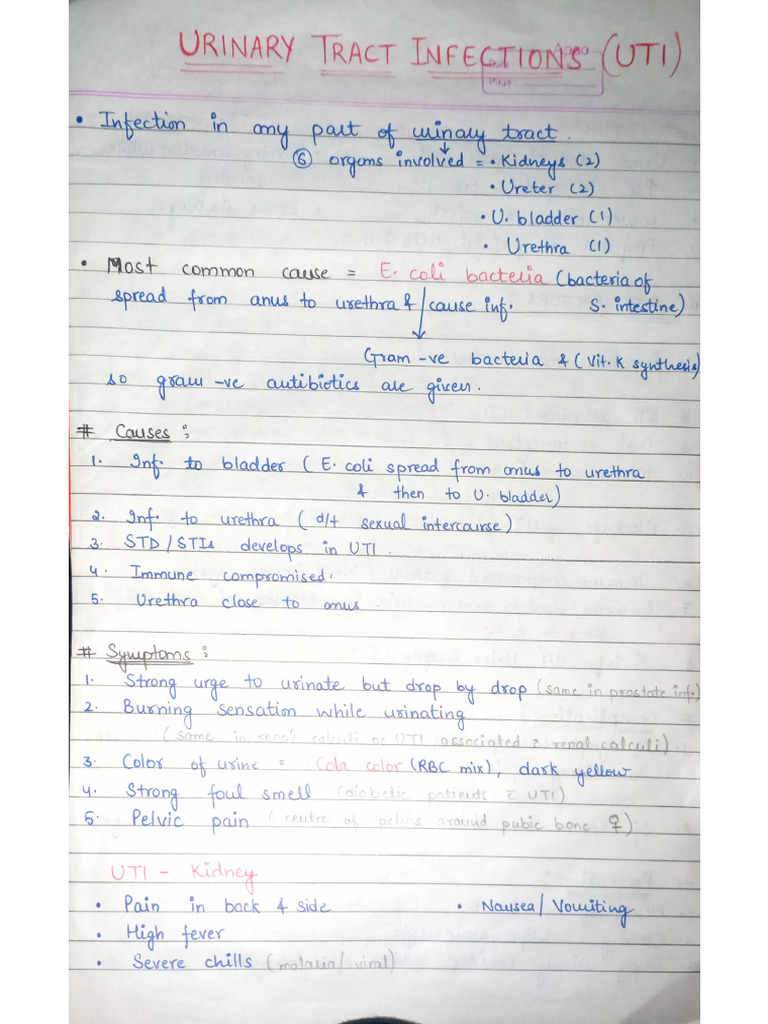 URINARY TRACT INFECTIONS (UTI)
• Infection in any part of urinary tract.
⑥ organs involved = • Kidneys (2)
• Ureter (2)
• U. bladder (1)
• Urethra (1)
• Most common cause = E. coli bacteria (bacteria of
spread from anus to urethra & cause inf. S. intestine)
Gram -ve bacteria & (Vit. K synthesis)
so gram -ve antibiotics are given.
# Causes :
1. Inf. to bladder ( E. coli spread from anus to urethra
& then to U. bladder)
2. Inf. to urethra ( d/t sexual intercourse)
3. STD / STIs develops in UTI.
4. Immune compromised.
5. Urethra close to anus
# Symptoms :
1. Strong urge to urinate but drop by drop (same in prostate inf.)
2. Burning sensation while urinating
(same in renal calculi or UTI associated c̄ renal calculi)
3. Color of urine = Cola color (RBC mix), dark yellow
4. Strong foul smell (diabetic patients c̄ UTI)
5. Pelvic pain (centre of pelvis around pubic bone ♀)
UTI - Kidney
• Pain in back & side • Nausea / Vomiting
• High fever
• Severe chills (malaria / viral)